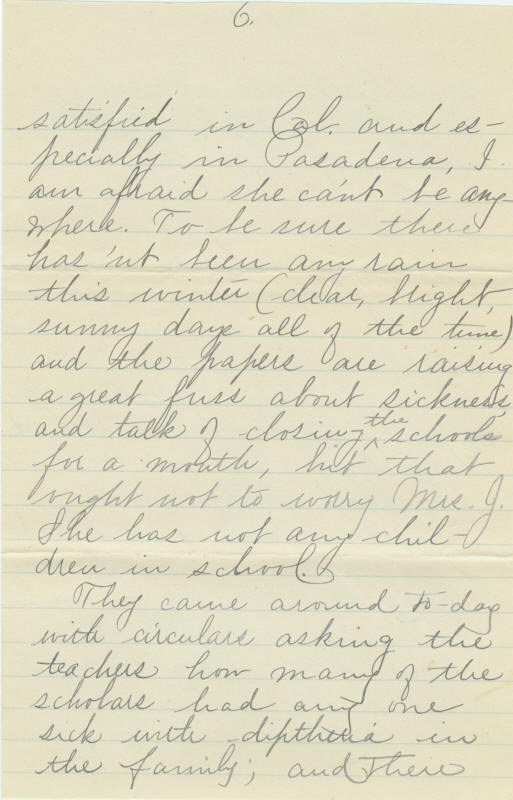 6.
satisfied in Cal. and es-
pecially in Pasadena, I
am afraid she can't be any-
where. To be sure there
has'nt been any rain
this winter (clear, bright,
sunny days all of the time)
and the papers are raising
a great fuss about sickness,
and talk of closing the schools
for a month, but that
ought not to worry Mrs. J.
She has not any chil-
dren in school.
They came around to-day
with circulars asking the
teachers how many of the
scholars had any one
sick with diptheria in
the family; and there